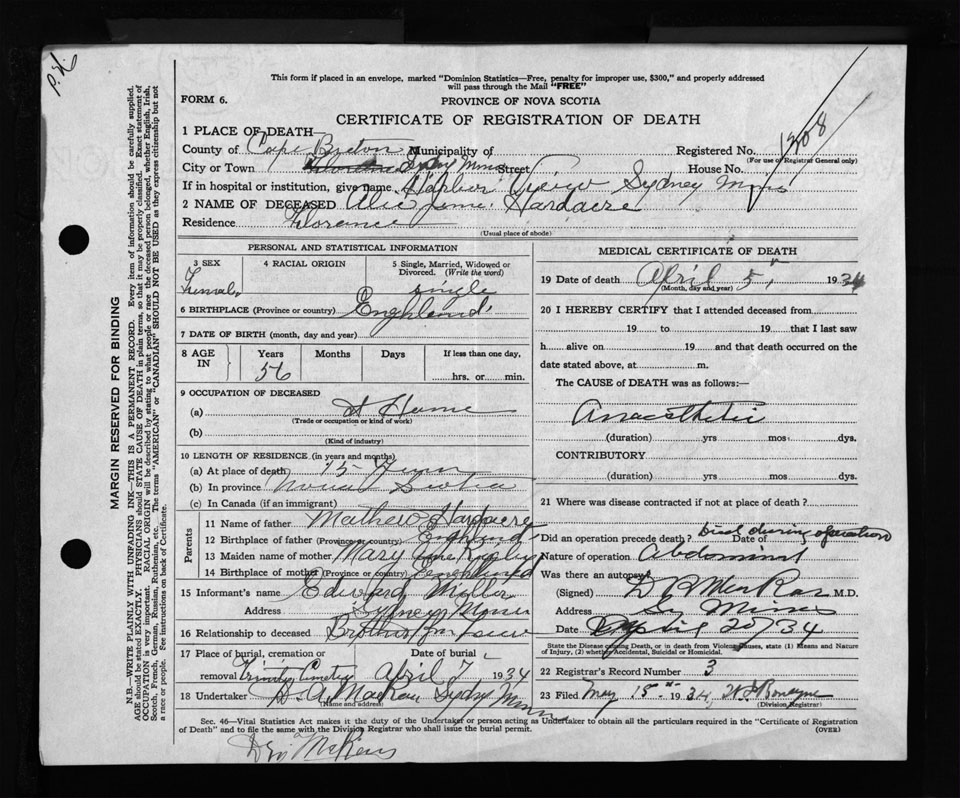 This form if placed in an envelope, marked "Dominion Statistics—Free, penalty for improper use, $300," and properly addressed
will pass through the Mail "FREE"
FORM 6.
PROVINCE OF NOVA SCOTIA
CERTIFICATE OF REGISTRATION OF DEATH
MARGIN RESERVED FOR BINDING
N.B.—WRITE PLAINLY WITH UNFADING INK—THIS IS A PERMANENT RECORD. Every item of information should be carefully supplied.
AGE should be stated EXACTLY. PHYSICIANS should STATE CAUSE OF DEATH in plain terms, so that it may be properly classified. Exact statement of
OCCUPATION is very important. RACIAL ORIGIN will be described by stating to what people or race the deceased person belonged, whether English, Irish,
Scotch, French, German, Russian, Ruthenian, etc. The terms "AMERICAN" or "CANADIAN" SHOULD NOT BE USED as they express citizenship but not
a race or people. See instructions on back of Certificate.
1 PLACE OF DEATH—
County of Cape Breton Municipality of Registered No. 1208
(For use of Registrar General only)
City or Town Sydney Mines Street House No.
If in hospital or institution, give name Harbor Sydney Mines
2 NAME OF DECEASED Alice Jane Hardacre
Residence Florence
(Usual place of abode)
PERSONAL AND STATISTICAL INFORMATION
3 SEX 4 RACIAL ORIGIN 5 Single, Married, Widowed or
Divorced. (Write the word)
Female single
6 BIRTHPLACE (Province or country) England
7 DATE OF BIRTH (month, day and year)
8 AGE IN Years Months Days If less than one day,
56 hrs. or min.
9 OCCUPATION OF DECEASED
(a) At Home
(Trade or occupation or kind of work)
(b)
(Kind of industry)
10 LENGTH OF RESIDENCE (in years and months)
(a) At place of death 15
(b) In province Nova Scotia
(c) In Canada (if an immigrant)
Parents
11 Name of father Mathew Hardacre
12 Birthplace of father (Province or country) England
13 Maiden name of mother Mary
14 Birthplace of mother (Province or country) England
15 Informant's name Edward
Address Sydney Mines
16 Relationship to deceased Brother in Law
17 Place of burial, cremation or Date of burial
removal Trinity Cemetery April 7 1934
18 Undertaker D. A. Sydney Mines
(Name and address)
MEDICAL CERTIFICATE OF DEATH
19 Date of death April 5, 1934
(Month, day and year)
20 I HEREBY CERTIFY that I attended deceased from
19 to 19 that I last saw
h alive on 19 and that death occurred on the
date stated above, at m.
The CAUSE of DEATH was as follows:—
Anaesthetic
(duration) yrs mos. dys.
CONTRIBUTORY
(duration) yrs mos. dys.
21 Where was disease contracted if not at place of death?
Did an operation precede death? Died during operation Date of
Nature of operation Abdominal
Was there an autopsy?
(Signed) M.D.
Address Sy Mines
Date April 20/34
State the Disease causing Death, or in death from Violent Causes, state (1) Means and Nature
of Injury, (2) whether Accidental, Suicidal or Homicidal.
22 Registrar's Record Number 3
23 Filed May 15 1934
(Division Registrar)
Sec. 46—Vital Statistics Act makes it the duty of the Undertaker or person acting as Undertaker to obtain all the particulars required in the "Certificate of Registration
of Death" and to file the same with the Division Registrar who shall issue the burial permit. (OVER)